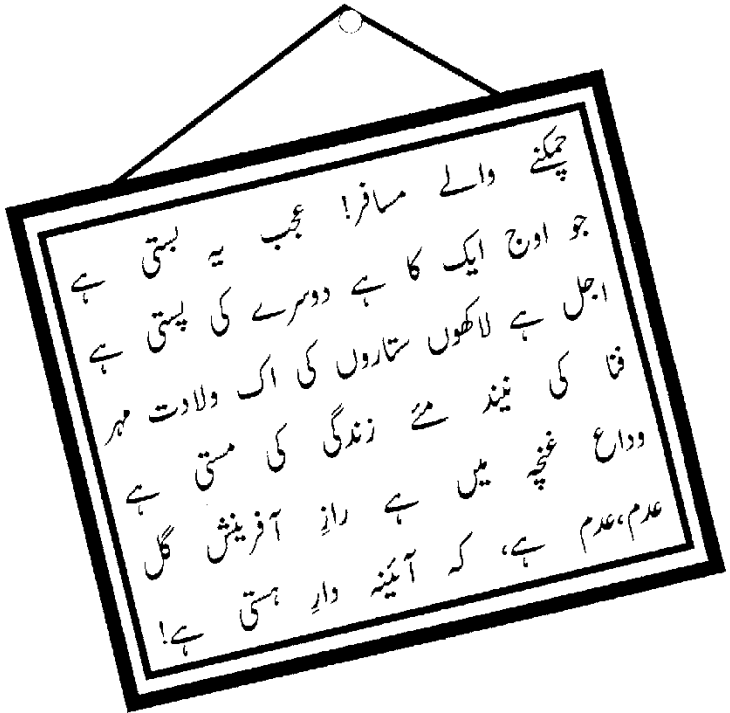 چمکنے والے مسافر! عجب یہ بستی ہے
جو اوج ایک کا ہے دوسرے کی پستی ہے
اجل ہے لاکھوں ستاروں کی اک ولادت مہر
فنا کی نیند مئے زندگی کی مستی ہے
وداع غنچہ میں ہے رازِ آفرینش گل
عدم،عدم ہے، کہ آئینہ دارِ ہستی ہے!